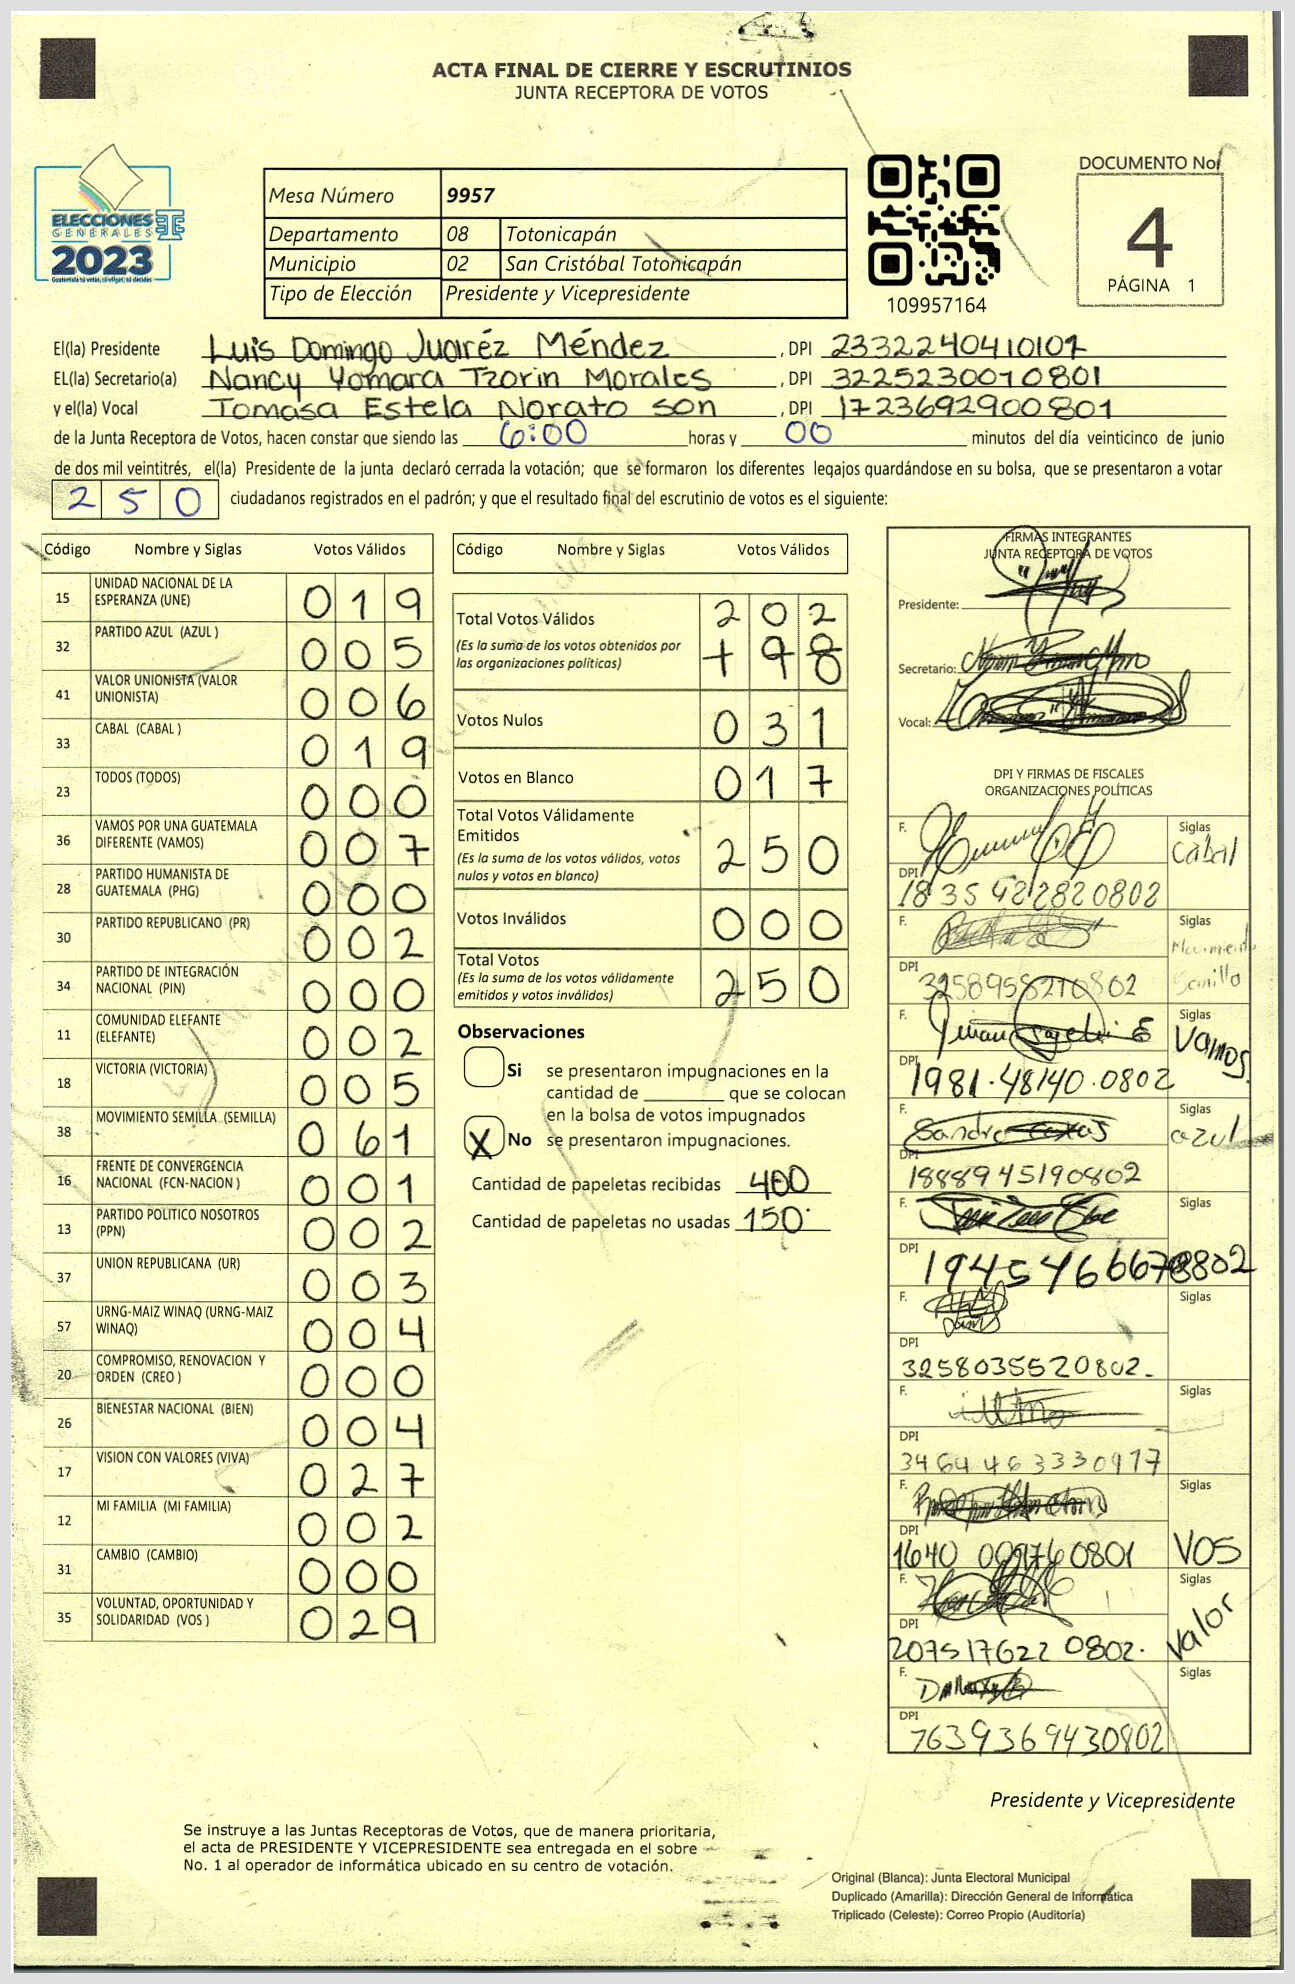 ACTA FINAL DE CIERRE Y ESCRUTINIOS
JUNTA RECEPTORA DE VOTOS
ELECCIONES
GENERALES
2023
Guatemala tú votas, tú eliges, tú decides
Mesa Número 9957
Departamento 08 Totonicapán
Municipio 02 San Cristóbal Totonicapán
Tipo de Elección Presidente y Vicepresidente
109957164
DOCUMENTO No.
4
PÁGINA 1
El(la) Presidente Luis Domingo Juaréz Méndez, DPI 2332240410101
EL(la) Secretario(a) Nancy Yomara Tzorin Morales, DPI 3225230010801
y el(la) Vocal Tomasa Estela Norato son, DPI 1723692900801
de la Junta Receptora de Votos, hacen constar que siendo las 6:00 horas y 00 minutos del día veinticinco de junio
de dos mil veintitrés, el(la) Presidente de la junta declaró cerrada la votación; que se formaron los diferentes legajos guardándose en su bolsa, que se presentaron a votar
250 ciudadanos registrados en el padrón; y que el resultado final del escrutinio de votos es el siguiente:
Código Nombre y Siglas Votos Válidos
15 UNIDAD NACIONAL DE LA ESPERANZA (UNE) 019
32 PARTIDO AZUL (AZUL ) 005
41 VALOR UNIONISTA (VALOR UNIONISTA) 006
33 CABAL (CABAL ) 019
23 TODOS (TODOS) 000
36 VAMOS POR UNA GUATEMALA DIFERENTE (VAMOS) 007
28 PARTIDO HUMANISTA DE GUATEMALA (PHG) 000
30 PARTIDO REPUBLICANO (PR) 002
34 PARTIDO DE INTEGRACIÓN NACIONAL (PIN) 000
11 COMUNIDAD ELEFANTE (ELEFANTE) 002
18 VICTORIA (VICTORIA) 005
38 MOVIMIENTO SEMILLA (SEMILLA) 061
16 FRENTE DE CONVERGENCIA NACIONAL (FCN-NACION ) 001
13 PARTIDO POLITICO NOSOTROS (PPN) 002
37 UNION REPUBLICANA (UR) 003
57 URNG-MAIZ WINAQ (URNG-MAIZ WINAQ) 004
20 COMPROMISO, RENOVACION Y ORDEN (CREO ) 000
26 BIENESTAR NACIONAL (BIEN) 004
17 VISION CON VALORES (VIVA) 027
12 MI FAMILIA (MI FAMILIA) 002
31 CAMBIO (CAMBIO) 000
35 VOLUNTAD, OPORTUNIDAD Y SOLIDARIDAD (VOS ) 029
Código Nombre y Siglas Votos Válidos
Total Votos Válidos 202
(Es la suma de los votos obtenidos por las organizaciones políticas) +98
Votos Nulos 031
Votos en Blanco 017
Total Votos Válidamente Emitidos 250
(Es la suma de los votos válidos, votos nulos y votos en blanco)
Votos Inválidos 000
Total Votos 250
(Es la suma de los votos válidamente emitidos y votos inválidos)
Observaciones
Si se presentaron impugnaciones en la
cantidad de ________ que se colocan
en la bolsa de votos impugnados
X No se presentaron impugnaciones.
Cantidad de papeletas recibidas 400
Cantidad de papeletas no usadas 150
FIRMAS INTEGRANTES
JUNTA RECEPTORA DE VOTOS
Presidente:
Secretario:
Vocal:
DPI Y FIRMAS DE FISCALES
ORGANIZACIONES POLÍTICAS
F. Siglas Cabal
DPI 1835422820802
F. Siglas Movimiento Semilla
DPI 3258958210802
F. Siglas Vamos.
DPI 1981.48140.0802
F. Sandra Siglas azul
DPI 1888945190802
F. Siglas
DPI
F. Siglas
DPI 3258035520802.
F. Siglas
DPI 3464463330917
F. Siglas VOS
DPI 1640 009760801
F. Siglas Valor
DPI 207517622 0802.
F. Siglas
DPI 7639369430802
Presidente y Vicepresidente
Se instruye a las Juntas Receptoras de Votos, que de manera prioritaria,
el acta de PRESIDENTE Y VICEPRESIDENTE sea entregada en el sobre
No. 1 al operador de informática ubicado en su centro de votación.
Original (Blanca): Junta Electoral Municipal
Duplicado (Amarilla): Dirección General de Informática
Triplicado (Celeste): Correo Propio (Auditoría)